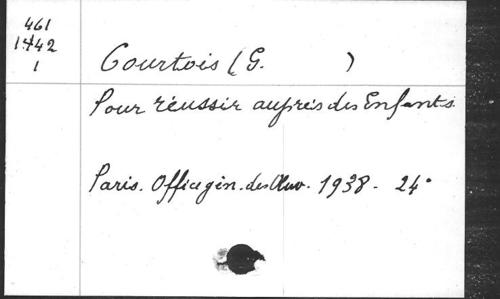 461
1442
1
Courtois (G. )
Pour réussir auprès des Enfants
Paris. Office gén. des Œuv. 1938 - 24°